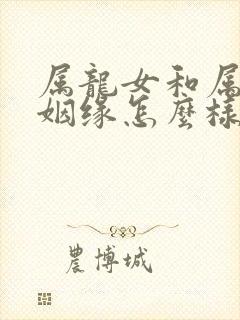 属龍女和属
姻缘怎麼樣
農博城